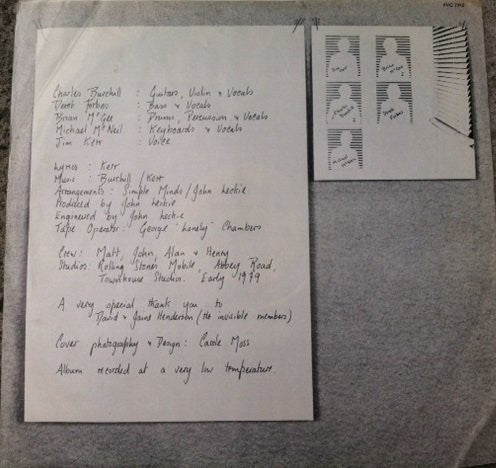 Charles Burchill : Guitars, Violin & Vocals
Derek Forbes : Bass & Vocals
Brian McGee : Drums, Percussion & Vocals
Michael McNeil : Keyboards & Vocals
Jim Kerr : Voice
Lyrics : Kerr
Music : Burchill / Kerr
Arrangements : Simple Minds / John Leckie
Produced by John Leckie
Engineered by John Leckie
Tape Operator : George "Lonely" Chambers
Crew : Matt, John, Alan & Henry
Studios : Rolling Stones Mobile, Abbey Road,
Townhouse Studios. Early 1979
A very special thank you to
David & Jaine Henderson (the invisible members)
Cover photography & Design : Carole Moss
Album recorded at a very low temperature.
Jim Kerr
Brian McGee
Charles Burchill
Derek Forbes
Michael McNeil